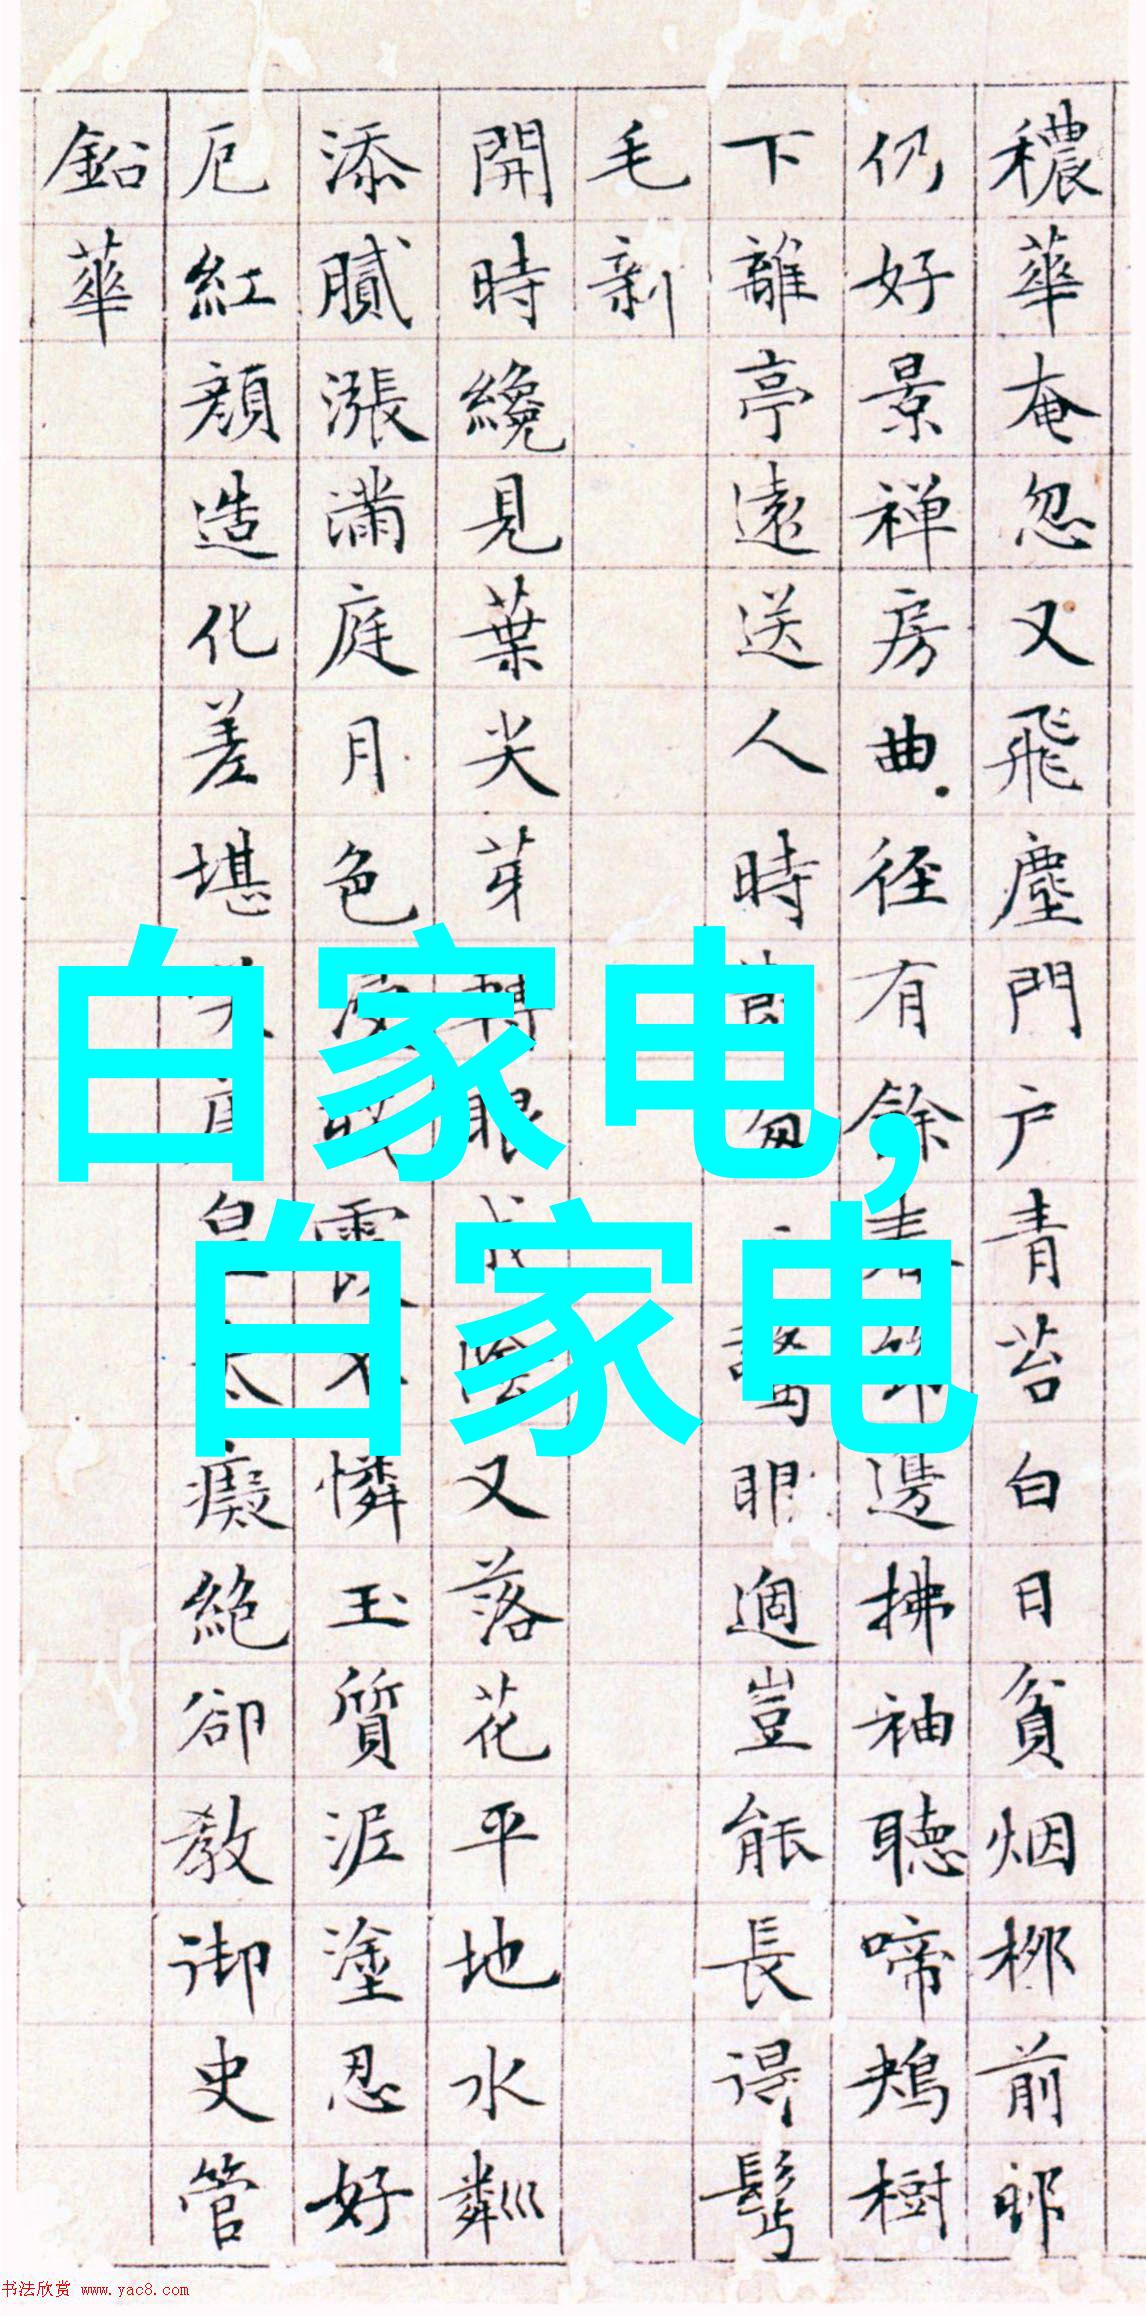 穠華奄忽又飛塵門户青苔白日貧烟栁前
仍好景禅房曲径有餘春邊拂袖聽啼樹
下離亭遠送人時眼過豈能長得
毛新
開時纔見葉尖芽轉眼成陰又落花平地水粼
添膩漲滿庭月色憐玉質泥塗忍好
厄紅顔造化差堪笑唐皇太癡絶卻教御史管
鉛華
白家电,
白家电
书法欣赏 www.yac8.com